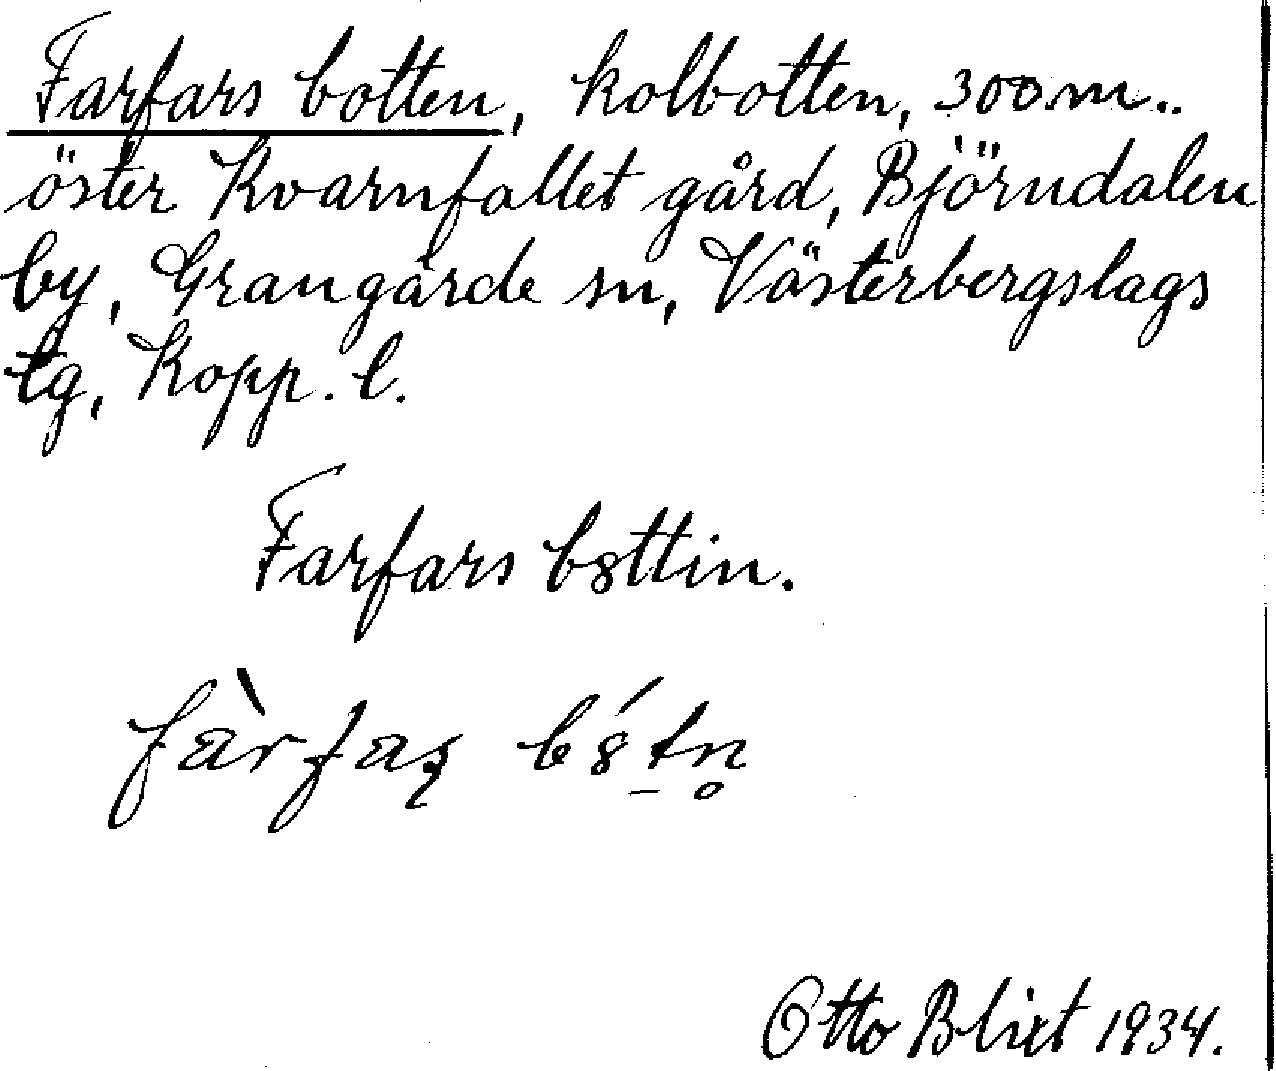 Farfars botten, kolbotten, 300 m..
öster Kvarnfallet gård, Björndalen
by, Grangärde sn, Västerbergslags
tg, Kopp. l.
Farfars bȣttin.
Otto Blixt 1934.